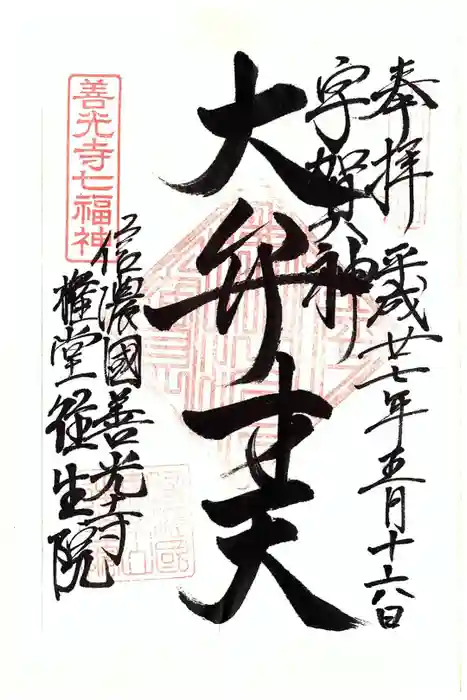 奉拝 平成廿七年五月十六日
宇賀神
大弁才天
信濃國善光寺
権堂往生院
善光寺七福神